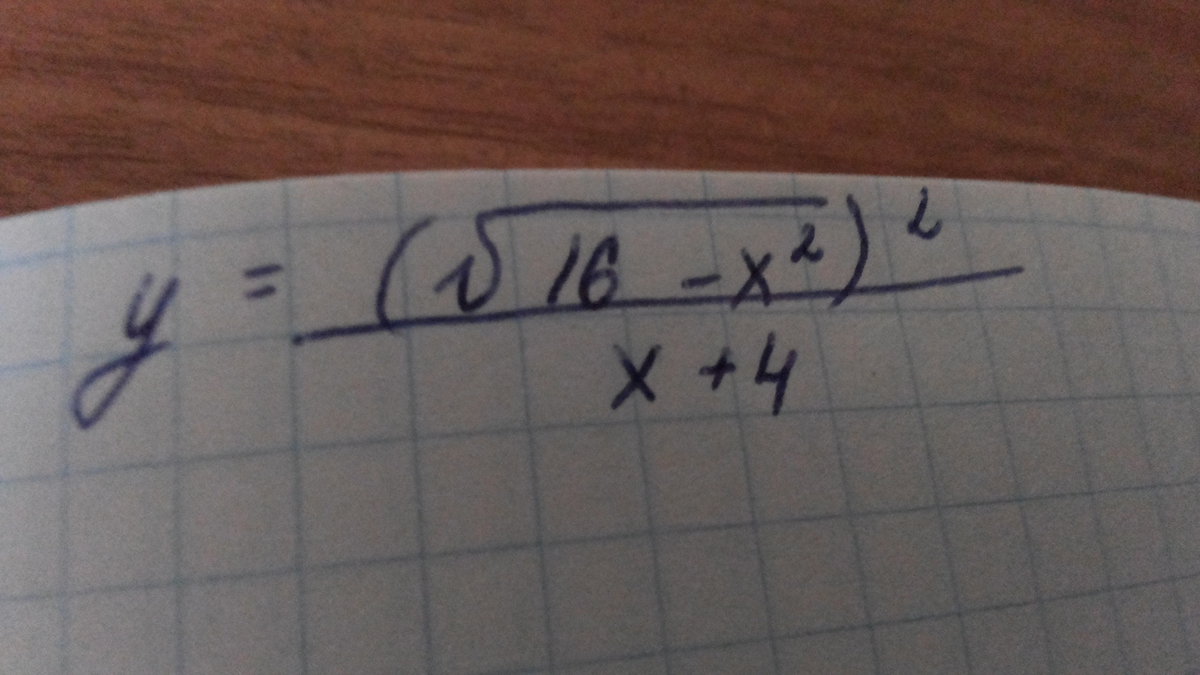 y = (√16 - x²)² / x + 4